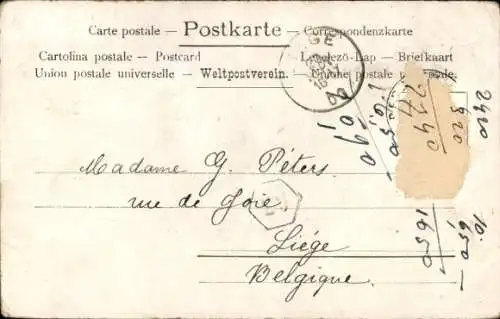 Carte postale – Postkarte – Correspondenzkarte
Cartolina postale – Postcard Levelező-Lap – Briefkaart
Union postale universelle – Weltpostverein. – Unione postale
Madame G. Péters
rue de Joie
Liége
Belgique
2420
920
1650
10.
650